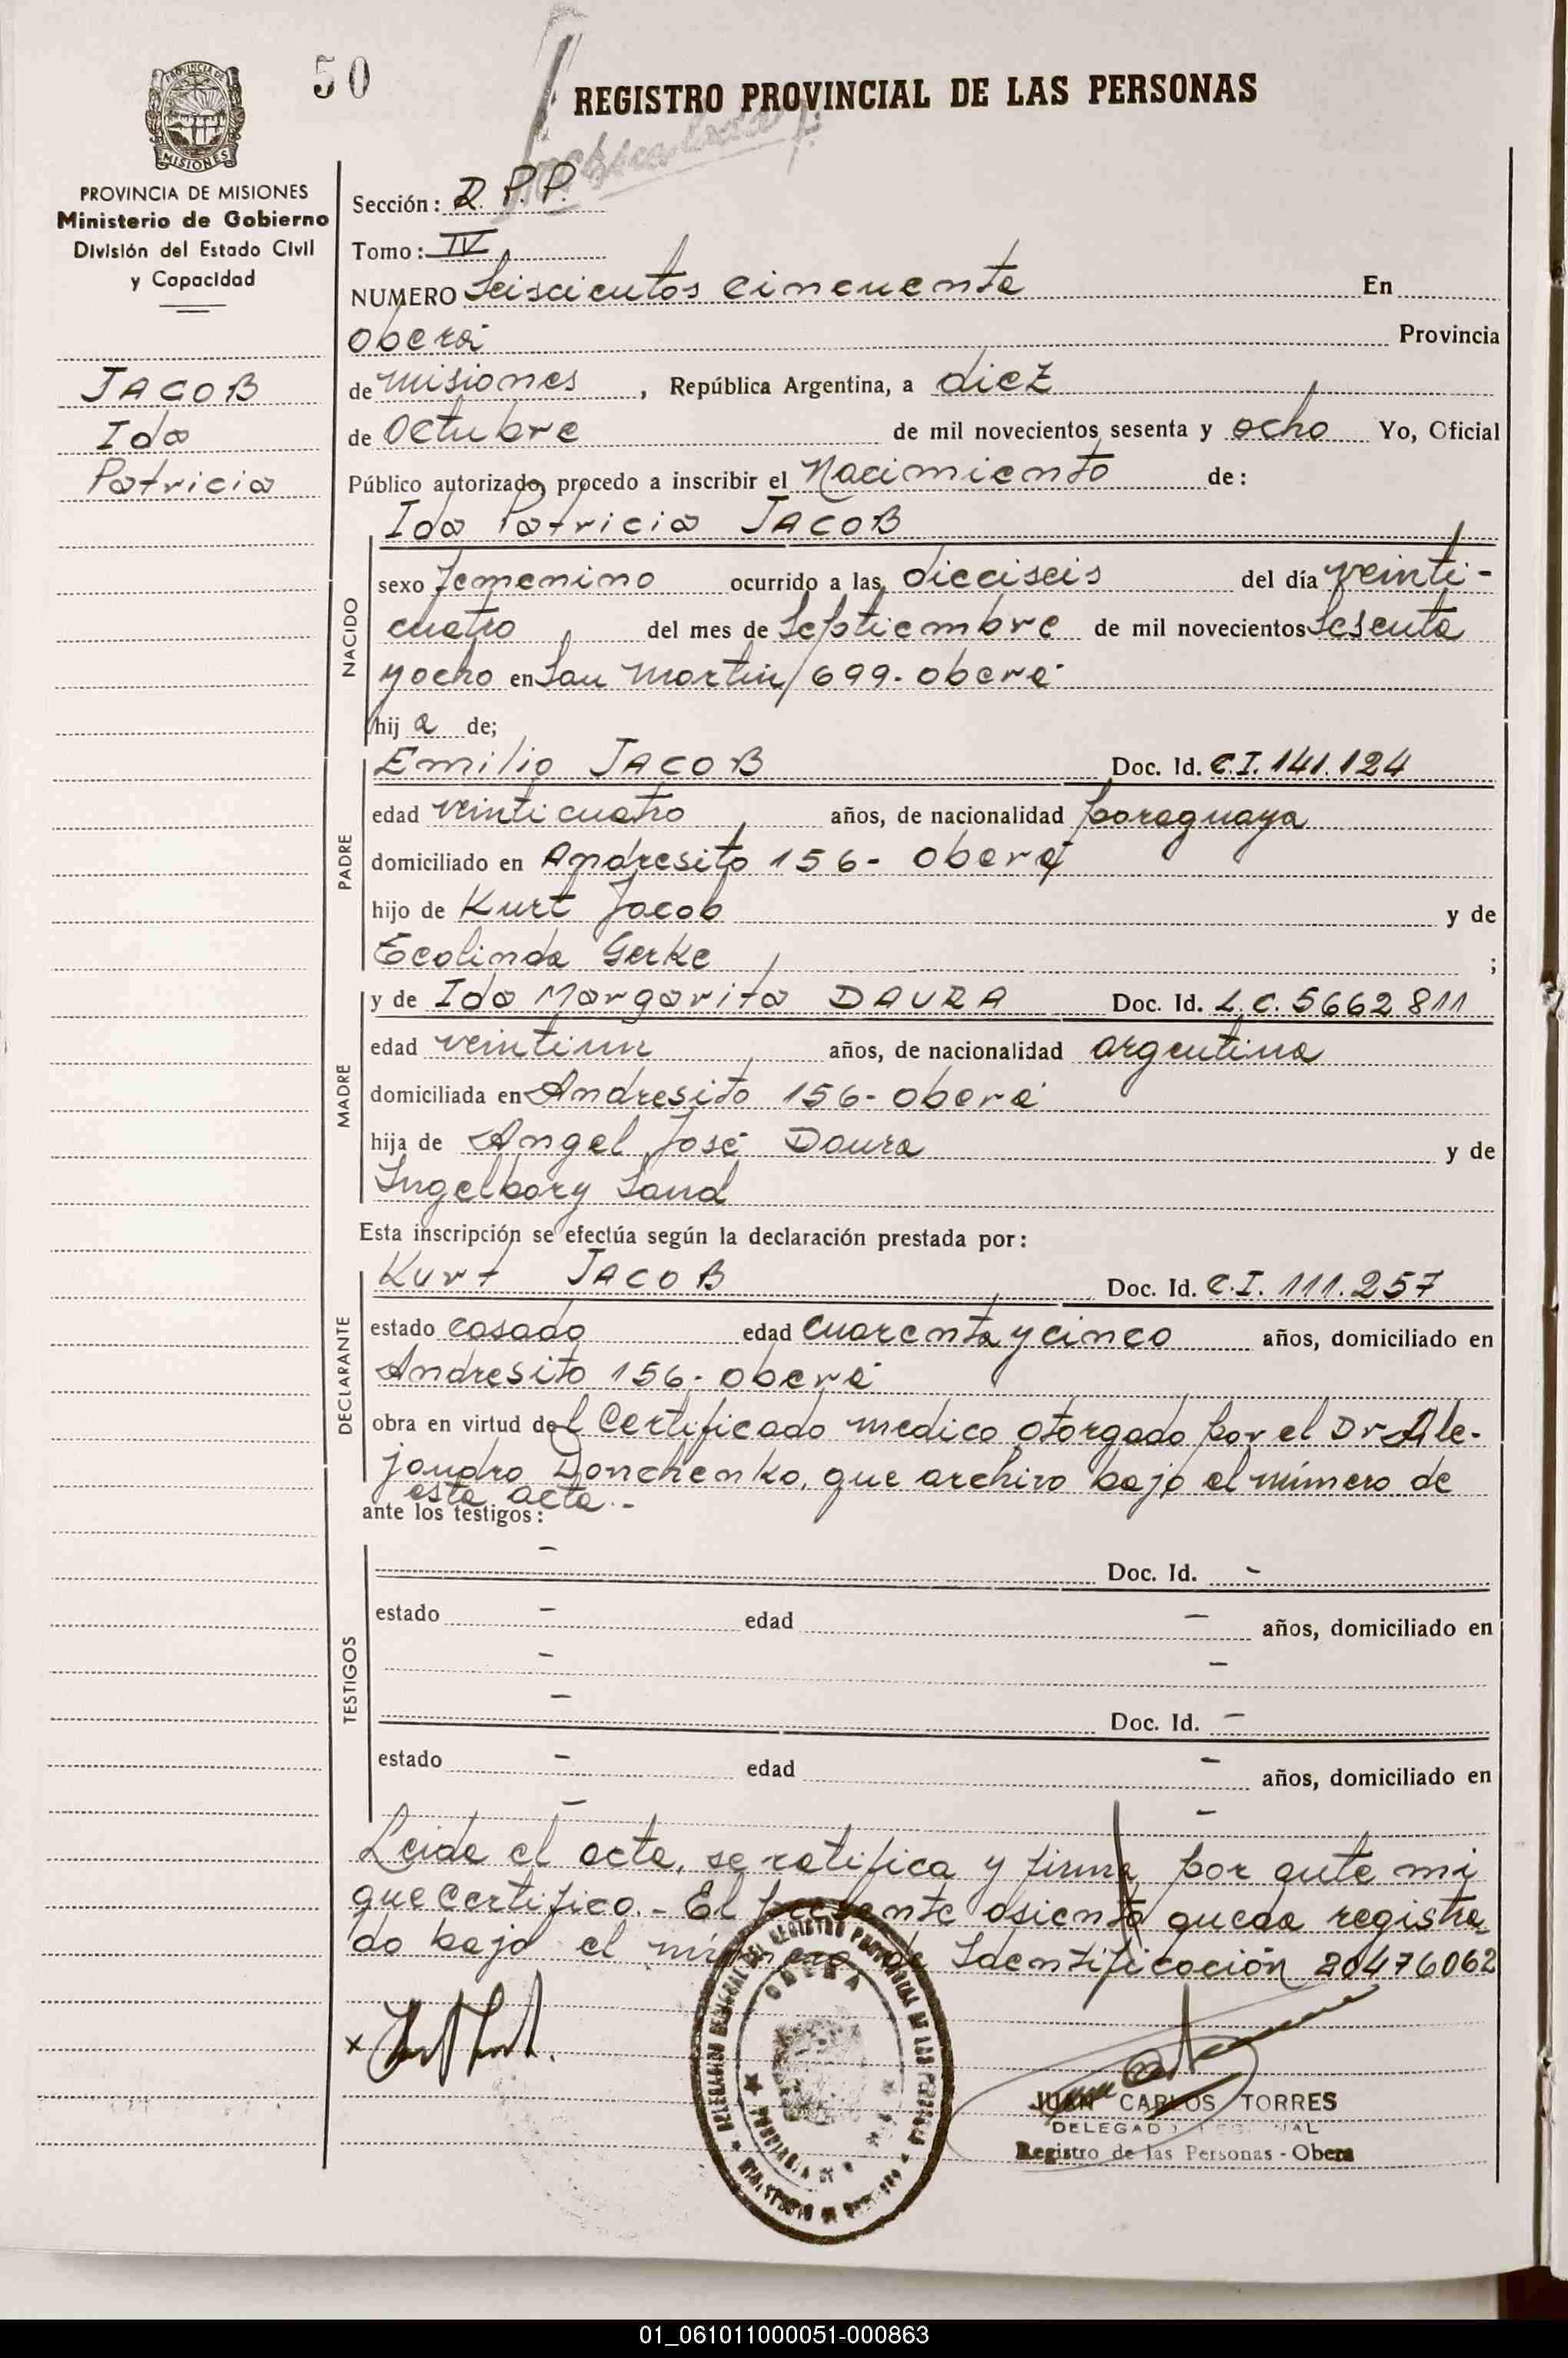 50
REGISTRO PROVINCIAL DE LAS PERSONAS
MISIONES
PROVINCIA DE MISIONES
Ministerio de Gobierno
División del Estado Civil
y Capacidad
JACOB
Ida
Patricia
Sección: R.P.P.
Tomo: IV
NUMERO Seiscientos cincuenta En
Oberá Provincia
de Misiones, República Argentina, a diez
de Octubre de mil novecientos sesenta y ocho Yo, Oficial
Público autorizado, procedo a inscribir el Nacimiento de:
Ida Patricia JACOB
NACIDO
sexo femenino ocurrido a las dieciseis del día veinti-
cuatro del mes de Septiembre de mil novecientos sesenta
y ocho en San Martin 699- Oberá
hij a de;
PADRE
Emilio JACOB Doc. Id. C.I. 141.124
edad veinticuatro años, de nacionalidad paraguaya
domiciliado en Andresito 156- Oberá
hijo de Kurt Jacob y de
Ecolinda Gerke ;
MADRE
y de Ida Margarita DAURA Doc. Id. L.C. 5662811
edad veintiun años, de nacionalidad argentina
domiciliada en Andresito 156- Oberá
hija de Angel José Daura y de
Ingelbory Sand
Esta inscripción se efectúa según la declaración prestada por:
DECLARANTE
Kurt JACOB Doc. Id. C.I. 111.257
estado casado edad cuarenta y cinco años, domiciliado en
Andresito 156- Oberá
obra en virtud del Certificado medico otorgado por el Dr Ale-
jandro Donchenko, que archivo bajo el número de
esta acta.-
ante los testigos:
TESTIGOS
- Doc. Id. -
estado - edad - años, domiciliado en
- -
- Doc. Id. -
estado - edad - años, domiciliado en
- -
Leida el acta, se ratifica y firma por ante mi
que certifico.- El presente asiento queda registra
do bajo el número de Identificación 20476062
OBERA
JUAN CARLOS TORRES
DELEGADO
Registro de las Personas - Obera
01_061011000051-000863